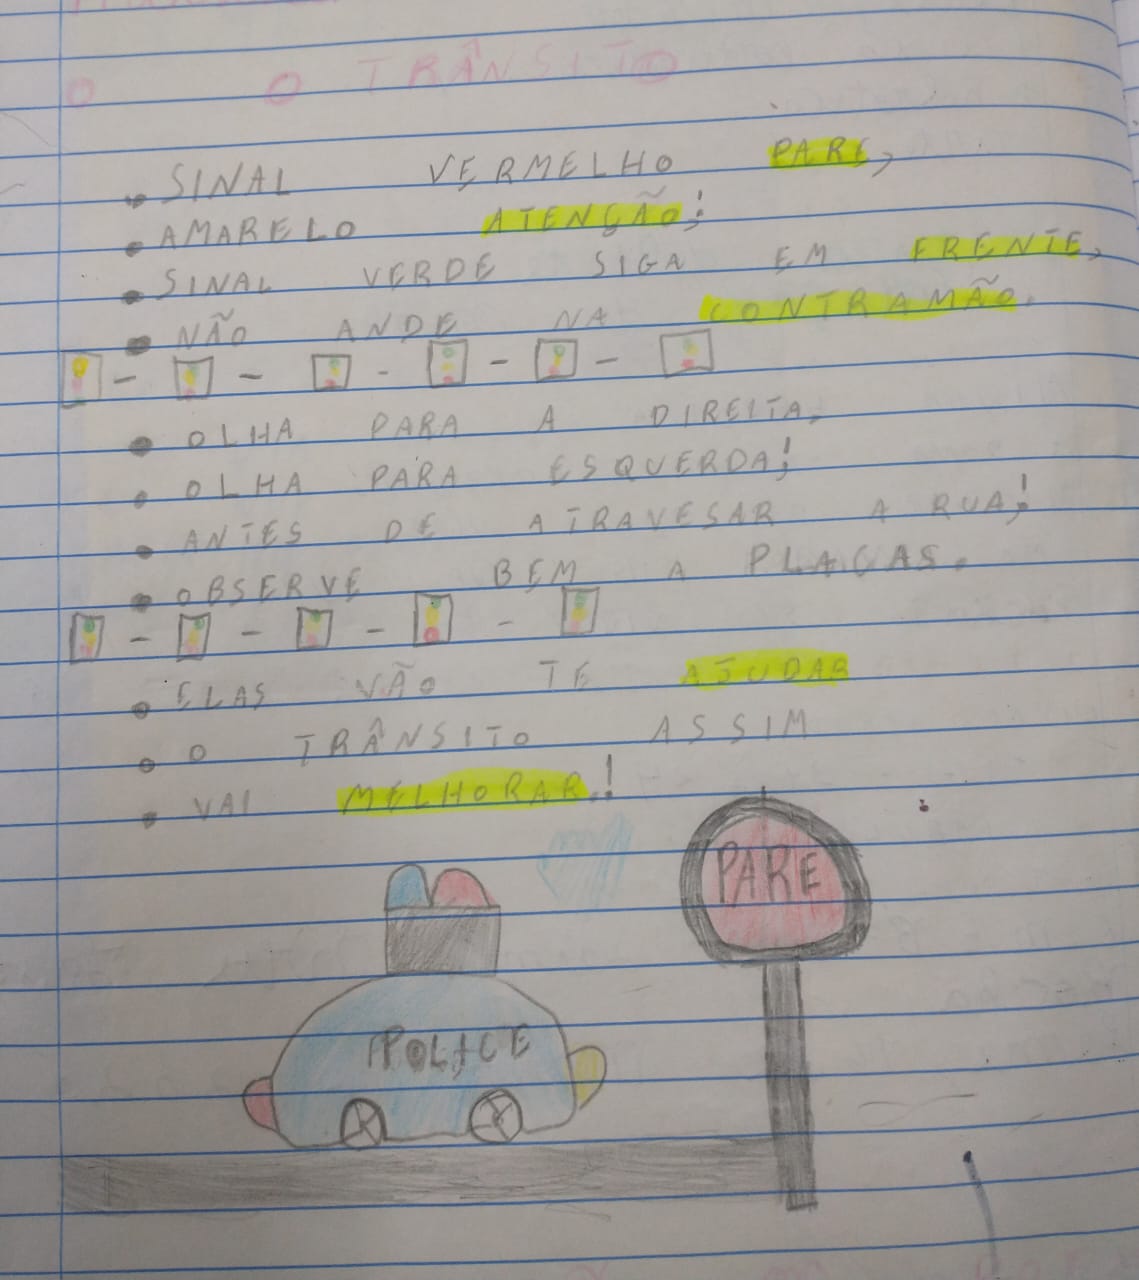 O TRÂNSITO
SINAL VERMELHO PARE,
AMARELO ATENÇÃO!
SINAL VERDE SIGA EM FRENTE,
NÃO ANDE NA CONTRAMÃO.
OLHA PARA A DIREITA.
OLHA PARA ESQUERDA!
ANTES DE ATRAVESAR A RUA!
OBSERVE BEM A PLACAS.
ELAS VÃO TE AJUDAR
O TRÂNSITO ASSIM
VAI MELHORAR.!
PARE
POLICE